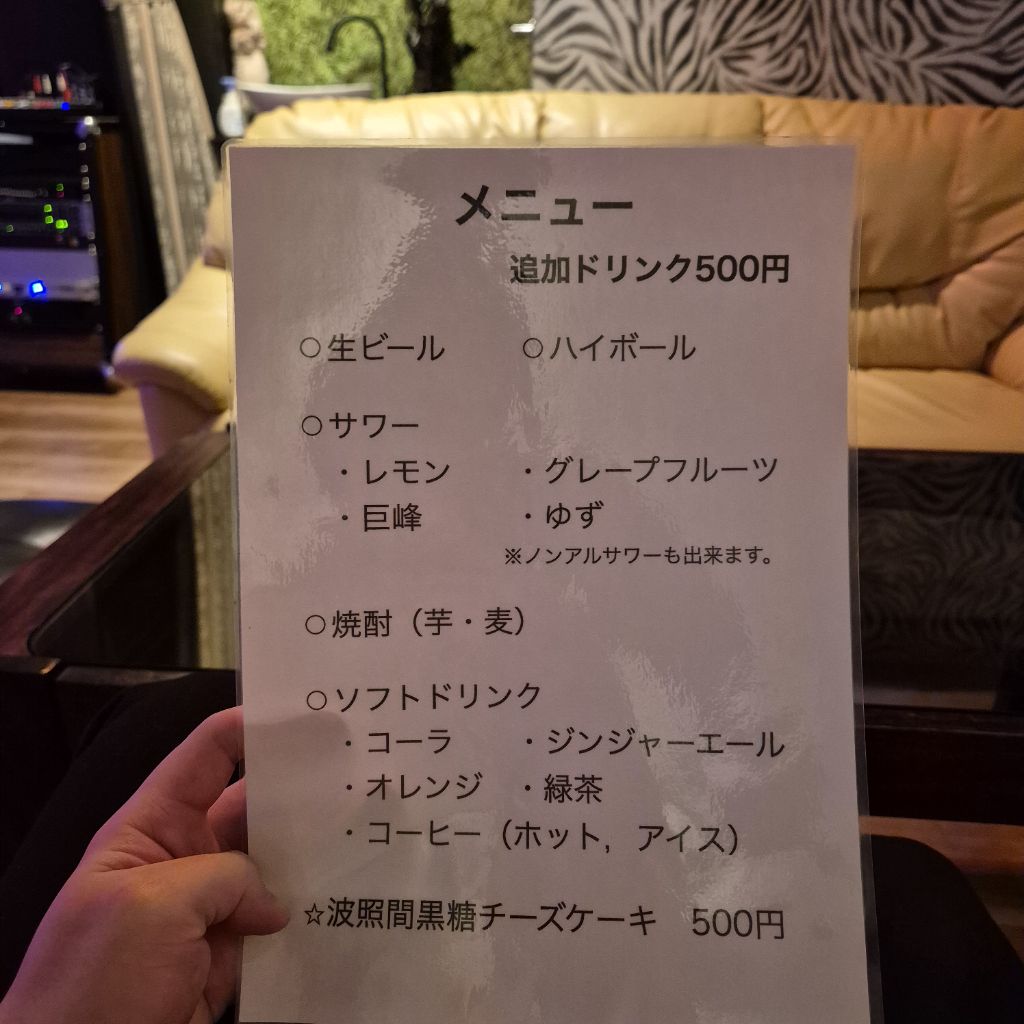 メニュー
追加ドリンク500円
○生ビール ○ハイボール
○サワー
・レモン ・グレープフルーツ
・巨峰 ・ゆず
※ノンアルサワーも出来ます。
○焼酎（芋・麦）
○ソフトドリンク
・コーラ ・ジンジャーエール
・オレンジ ・緑茶
・コーヒー（ホット，アイス）
☆波照間黒糖チーズケーキ 500円